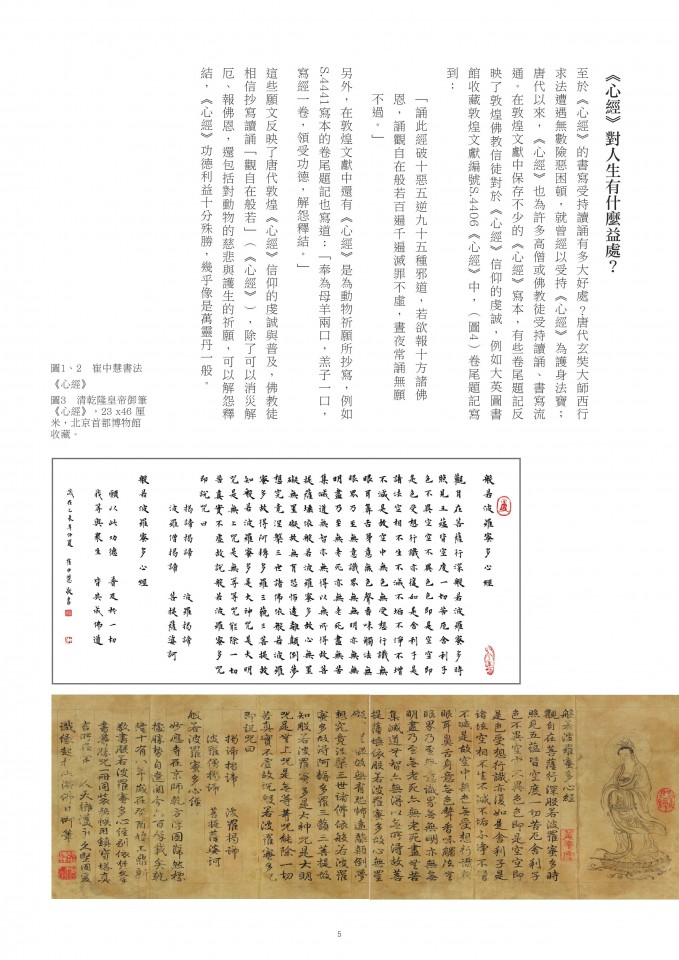 《心經》對人生有什麼益處？
至於《心經》的書寫受持讀誦有多大好處？唐代玄奘大師西行
求法遭遇無數險惡困頓，就曾經以受持《心經》為護身法寶；
唐代以來，《心經》也為許多高僧或佛教徒受持讀誦、書寫流
通。在敦煌文獻中保存不少的《心經》寫本，有些卷尾題記反
映了敦煌佛教信徒對於《心經》信仰的虔誠，例如大英圖書
館收藏敦煌文獻編號S.4406《心經》中，（圖4）卷尾題記寫
到：
「誦此經破十惡五逆九十五種邪道，若欲報十方諸佛
恩，誦觀自在般若百遍千遍滅罪不虛，晝夜常誦無願
不過。」
另外，在敦煌文獻中還有《心經》是為動物祈願所抄寫，例如
S.4441寫本的卷尾題記也寫道：「奉為母羊兩口，羔子一口，
寫經一卷，領受功德，解怨釋結。」
這些願文反映了唐代敦煌《心經》信仰的虔誠與普及，佛教徒
相信抄寫讀誦「觀自在般若」（《心經》），除了可以消災解
厄、報佛恩，還包括對動物的慈悲與護生的祈願，可以解怨釋
結，《心經》功德利益十分殊勝，幾乎像是萬靈丹一般。
圖1、2　崔中慧書法
《心經》
圖3　清乾隆皇帝御筆
《心經》，23 x46 厘
米，北京首都博物館
收藏。
般若波羅蜜多心經
觀自在菩薩行深般若波羅蜜多時
照見五蘊皆空度一切苦厄舍利子
色不異空空不異色色即是空空即
是色受想行識亦復如是舍利子是
諸法空相不生不滅不垢不淨不增
不減是故空中無色無受想行識無
眼耳鼻舌身意無色聲香味觸法無
眼界乃至無意識界無無明亦無無
明盡乃至無老死亦無老死盡無苦
集滅道無智亦無得以無所得故菩
提薩埵依般若波羅蜜多故心無罣
礙無罣礙故無有恐怖遠離顛倒夢
想究竟涅槃三世諸佛依般若波羅
蜜多故得阿耨多羅三藐三菩提故
知般若波羅蜜多是大神咒是大明
咒是無上咒是無等等咒能除一切
苦真實不虛故說般若波羅蜜多咒
即說咒曰
揭諦揭諦　波羅揭諦
波羅僧揭諦　菩提薩婆訶
般若波羅蜜多心經
願以此功德　普及於一切
我等與眾生　皆共成佛道
般若波羅蜜多心經
觀自在菩薩行深般若波羅蜜多時
照見五蘊皆空度一切苦厄舍利子
色不異空空不異色色即是空空即
是色受想行識亦復如是舍利子是
諸法空相不生不滅不垢不淨不增
不減是故空中無色無受想行識無
眼耳鼻舌身意無色聲香味觸法無
眼界乃至無意識界無無明亦無無
明盡乃至無老死亦無老死盡無苦
集滅道無智亦無得以無所得故菩
提薩埵依般若波羅蜜多故心無罣
礙無罣礙故無有恐怖遠離顛倒夢
想究竟涅槃三世諸佛依般若波羅
蜜多故得阿耨多羅三藐三菩提故
知般若波羅蜜多是大神咒是大明
咒是無上咒是無等等咒能除一切
苦真實不虛故說般若波羅蜜多咒
即說咒曰
揭諦揭諦　波羅揭諦
波羅僧揭諦　菩提薩婆訶
般若波羅蜜多心經
5